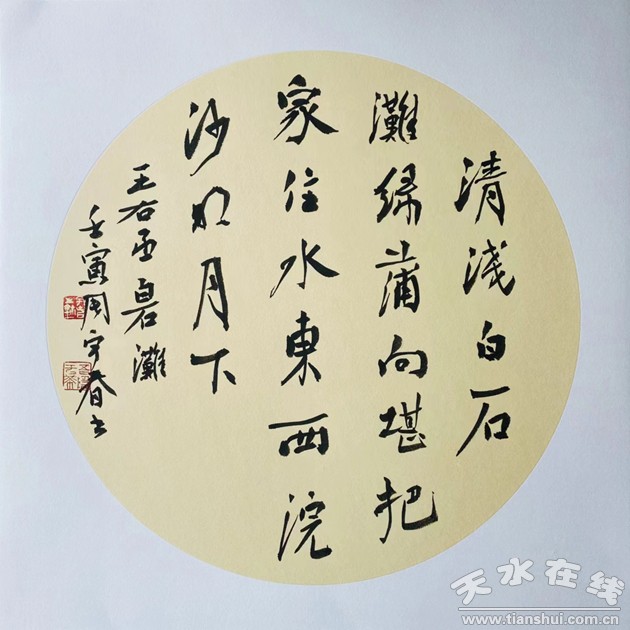 清浅白石
灘綠蒲向堪把
家住水東西浣
沙明月下
王右丞白石灘
壬寅周宇春书
天水在线
www.tianshui.com.cn